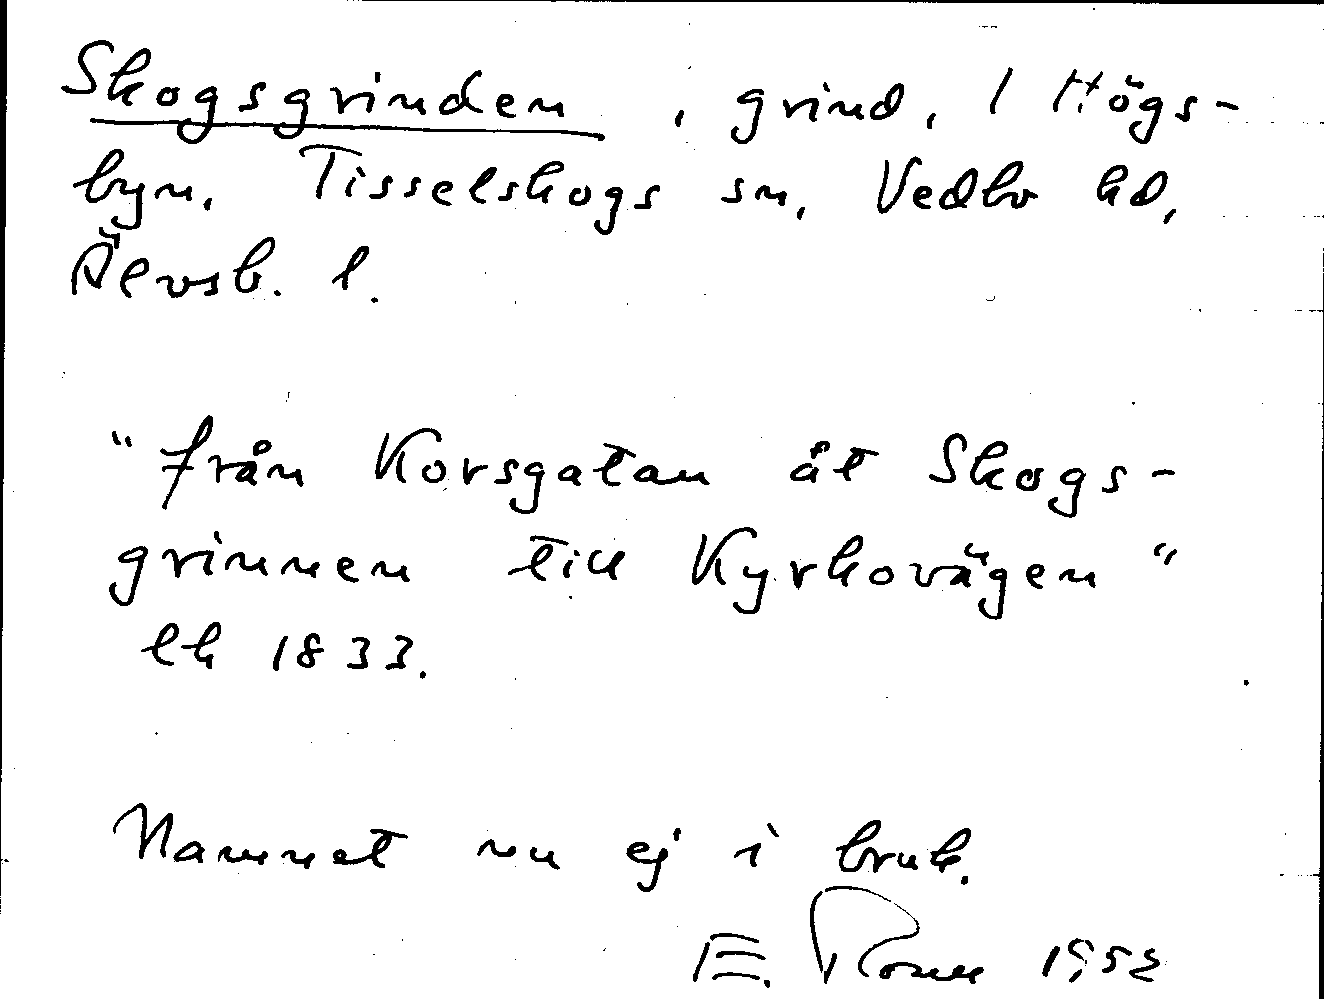 Skogsgrinden, grind, 1 Högs-
byn, Tisselskogs sn, Vedbo hd,
Älvsb. l.
"från Korsgatan åt Skogs-
grinnen till Kyrkovägen"
lh 1833.
Namnet nu ej i bruk.
E. 1952